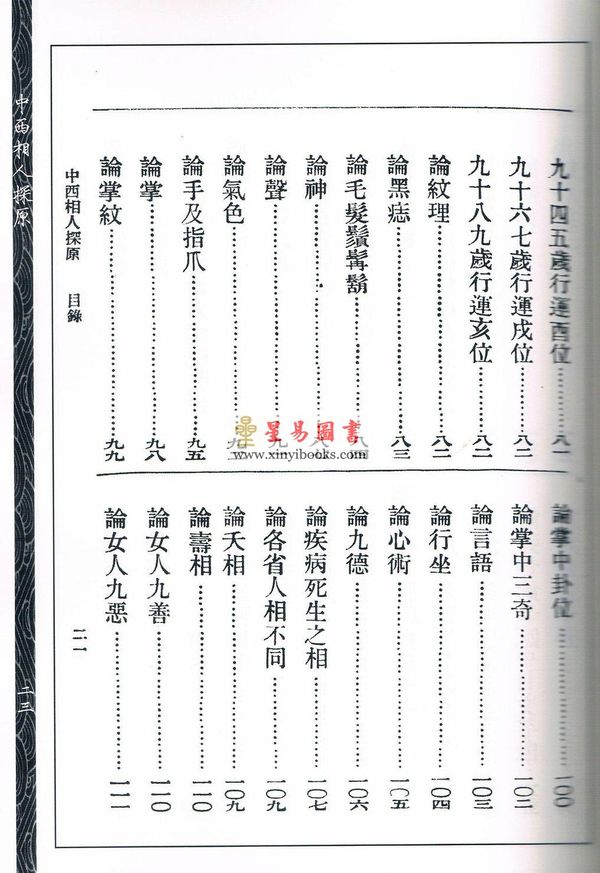 九十四五歲行運酉位…………八一
九十六七歲行運戌位…………八二
九十八九歲行運亥位…………八二
論紋理…………八二
論黑痣…………八三
論毛髮鬚髯鬍…………
論神…………
論聲…………
論氣色…………
論手及指爪…………九五
論掌…………九八
論掌紋…………九九
論掌中卦位…………一〇〇
論掌中三奇…………一〇二
論言語…………一〇三
論行坐…………一〇四
論心術…………一〇五
論九德…………一〇六
論疾病死生之相…………一〇七
論各省人相不同…………一〇九
論夭相…………一〇九
論壽相…………一一〇
論女人九善…………一一〇
論女人九惡…………一一一
中西相人探原 目錄 二一
中西相人探原 二三
星易圖書
www.xinyibooks.com